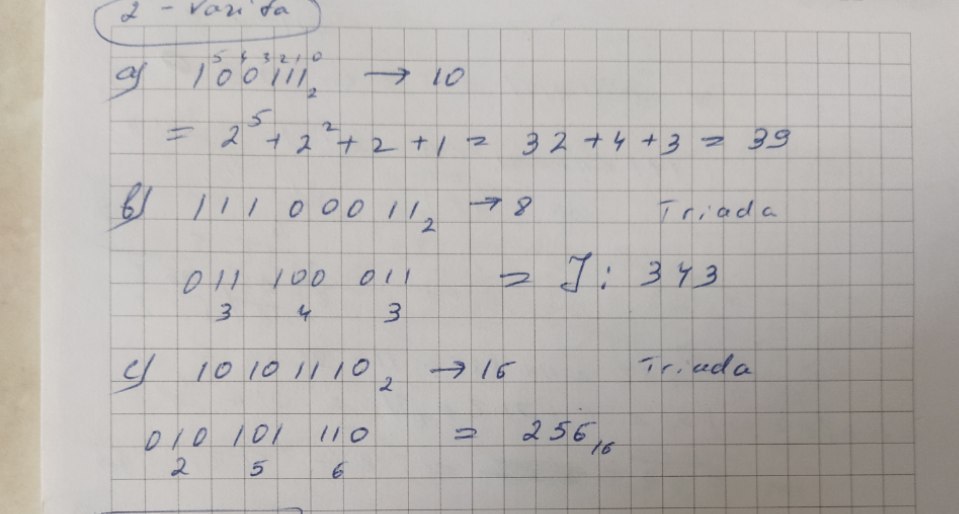 2 - Varita
a) 1⁵0⁴0³1²1¹1⁰₂ → 10
= 2⁵ + 2² + 2 + 1 = 32 + 4 + 3 = 39
b) 111 000 11₂ → 8 Triada
011 100 011 = J: 343
3 4 3
c) 10 10 11 10₂ → 16 Triada
010 101 110 = 256₁₆
2 5 6